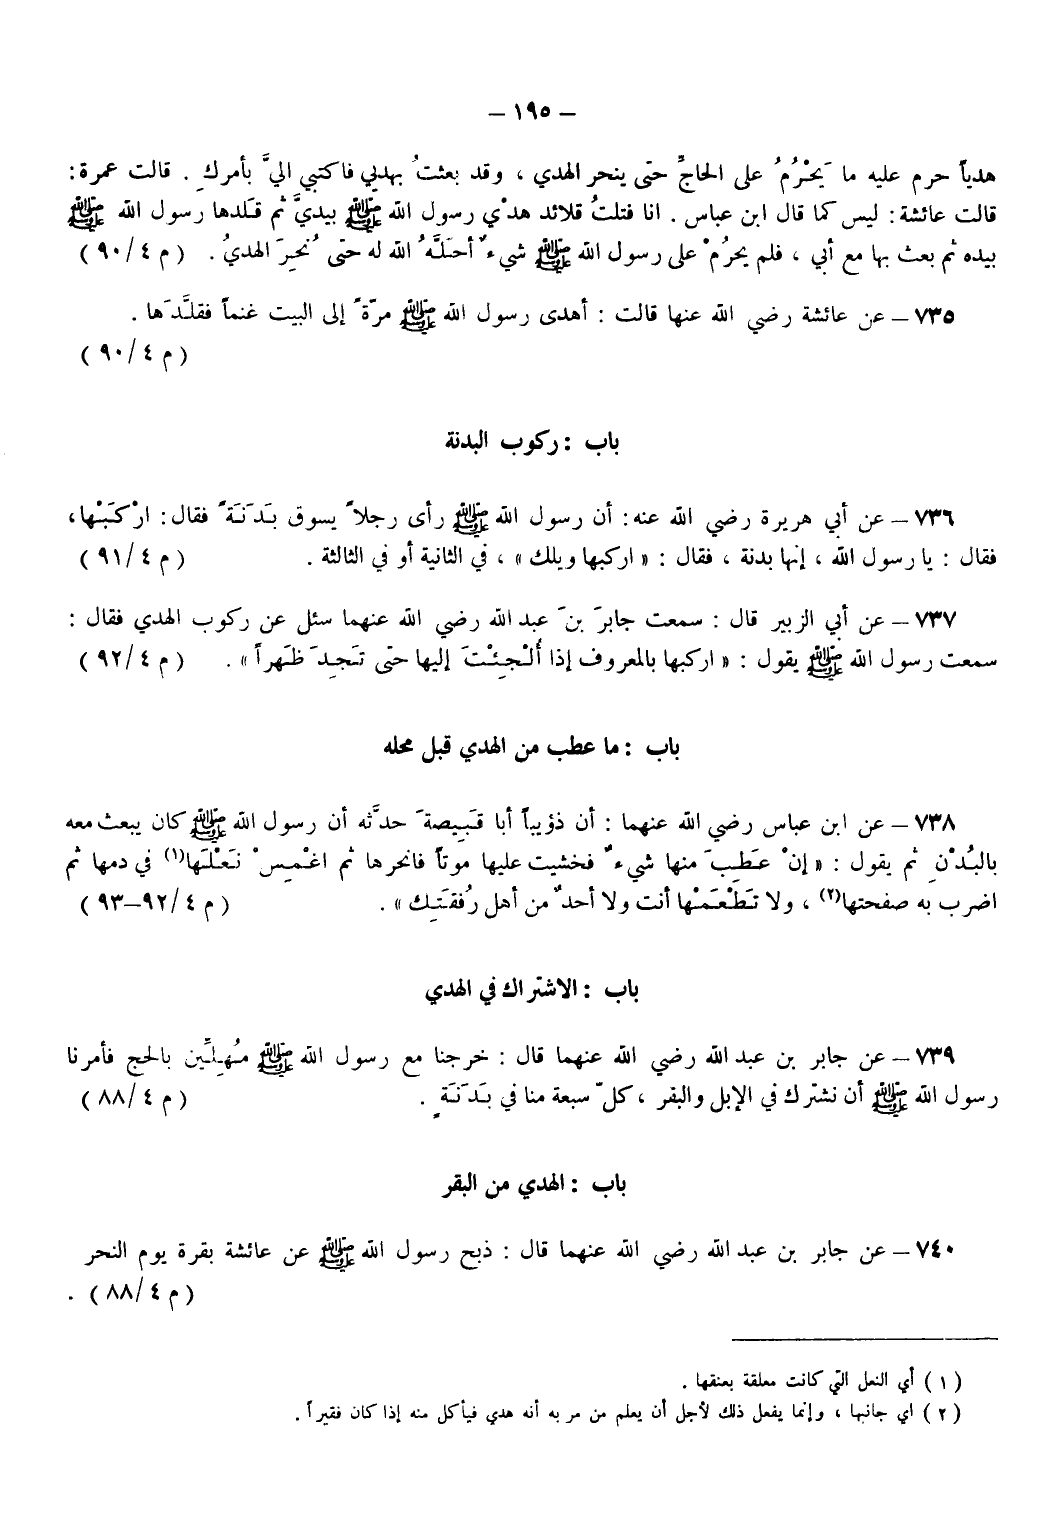 – ١٩٥ –
هدياً حرم عليه ما يَحْرُمُ على الحاجِّ حتى ينحر الهدي ، وقد بعثتُ بهديي فاكتبي اليَّ بأمركِ . قالت عمرة :
قالت عائشة : ليس كما قال ابن عباس . انا فتلتُ قلائد هدْي رسول الله ﷺ بيديَّ ثم قلدها رسول الله ﷺ
بيده ثم بعث بها مع أبي ، فلم يحرُمْ على رسول الله ﷺ شيءٌ أحلَّهُ الله له حتى نُحِرَ الهديُ . ( م ٤/ ٩٠ )
٧٣٥ – عن عائشة رضي الله عنها قالت : أهدى رسول الله ﷺ مرّةً إلى البيت غنماً فقلَّدَها .
( م ٤/ ٩٠ )
باب : ركوب البدنة
٧٣٦ – عن أبي هريرة رضي الله عنه : أن رسول الله ﷺ رأى رجلاً يسوق بَدَنَةً فقال : ارْكَبْها ،
فقال : يا رسول الله ، إنها بدنة ، فقال : « اركبها ويلك » ، في الثانية أو في الثالثة . ( م ٤/ ٩١ )
٧٣٧ – عن أبي الزبير قال : سمعت جابرَ بنَ عبد الله رضي الله عنهما سئل عن ركوب الهدي فقال :
سمعت رسول الله ﷺ يقول : « اركبها بالمعروف إذا أُلْجِئْتَ إليها حتى تَجِدَ ظَهراً » . ( م ٤/ ٩٢ )
باب : ما عطب من الهدي قبل محله
٧٣٨ – عن ابن عباس رضي الله عنهما : أن ذؤيباً أبا قَبِيصةَ حدَّثه أن رسول الله ﷺ كان يبعث معه
بالبُدْنِ ثم يقول : « إنْ عَطِبَ منها شيءٌ فخشيت عليها موتاً فانحرها ثم اغْمِسْ نَعْلَها(١) في دمها ثم
اضرب به صفحتها(٢) ، ولا تَطْعَمْها أنت ولا أحدٌ من أهل رُفقَتِك » . ( م ٤/ ٩٢–٩٣ )
باب : الاشتراك في الهدي
٧٣٩ – عن جابر بن عبد الله رضي الله عنهما قال : خرجنا مع رسول الله ﷺ مُهِلِّين بالحج فأمرنا
رسول الله ﷺ أن نشترك في الإبل والبقر ، كلّ سبعة منا في بَدَنَةٍ . ( م ٤/ ٨٨ )
باب : الهدي من البقر
٧٤٠ – عن جابر بن عبد الله رضي الله عنهما قال : ذبح رسول الله ﷺ عن عائشة بقرة يوم النحر
( م ٤/ ٨٨ ) .
( ١ ) أي النعل التي كانت معلقة بعنقها .
( ٢ ) اي جانبها ، وإنما يفعل ذلك لأجل أن يعلم من مر به أنه هدي فيأكل منه إذا كان فقيراً .